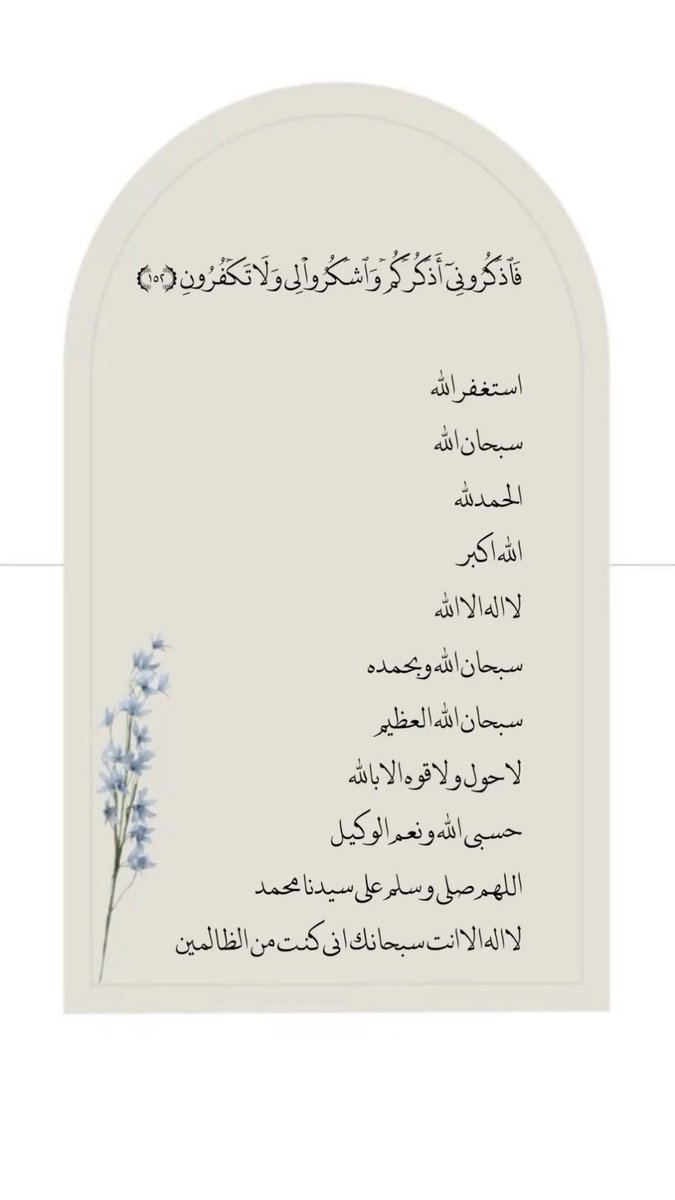 فَٱذْكُرُونِىٓ أَذْكُرْكُمْ وَٱشْكُرُوا۟ لِى وَلَا تَكْفُرُونِ ﴿١٥٢﴾
استغفر الله
سبحان الله
الحمدلله
الله اكبر
لا اله الا الله
سبحان الله وبحمده
سبحان الله العظيم
لا حول ولا قوه الا بالله
حسبي الله ونعم الوكيل
اللهم صلي وسلم على سيدنا محمد
لا اله الا انت سبحانك اني كنت من الظالمين